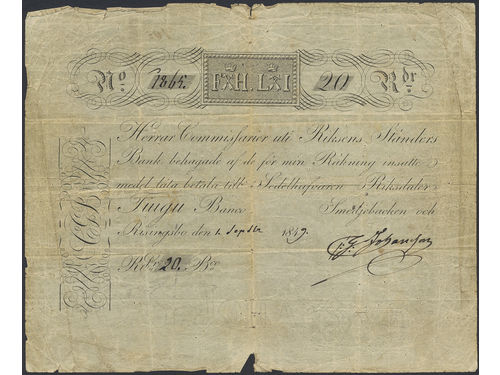 No 1865. FAH. LAI 20 Rdr
Herrar Commissarier uti Riksens Ständers
Bank behagade af de för min Räkning insatte
medel låta betala till Sedelhafvaren Riksdaler
Tjugu Banco Smedjebacken och
Risingsbo den 1 Septbr 1859.
Rdr 20. Bco
Johansson